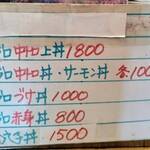 グロ中トロ上丼 1800
グロ中トロ丼・サーモン丼 各100
グロづけ丼 1000
グロ赤身丼 800
穴子丼 1500